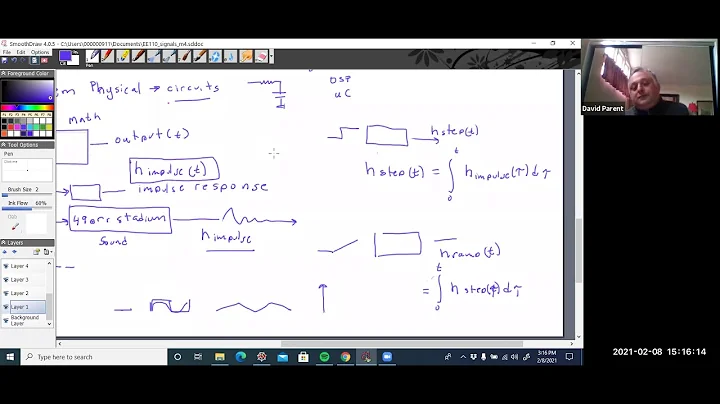 SmoothDraw 4.0.5 - C:\Users\000000911\Documents\EE110_signals_m4.sddoc
Foreground Color
Tool Options
Pen
Brush Size 2
Ink Flow 60%
Layers
Layer 4
Layer 3
Layer 2
Layer 1
Background Layer
Physical → circuits
DSP
uC
math
output(t)
h impulse(t)
impulse response
49err stadium
sound
h impulse
h step(t)
h step(t) = ∫ 0 t h impulse(τ) dτ
h ramp(t)
= ∫ 0 t h step(τ) dτ
David Parent
Type here to search
3:16 PM
2/8/2021
2021-02-08 15:16:14